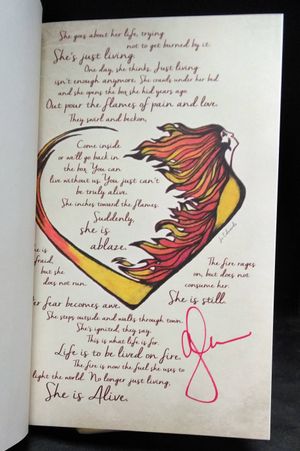 She goes about her life, trying
not to get burned by it.
She's just living.
One day, she thinks, Just living
isn't enough anymore. She crawls under her bed
and she opens the box she hid years ago.
Out pour the flames of pain and love.
They swirl and beckon,
Come inside
or we'll go back in
the box. You can
live without us. You just can't
be truly alive.
She inches toward the flames.
Suddenly,
she is
ablaze.
he is
fraid,
but she
does not run.
The fire rages
on, but does not
consume her.
er fear becomes awe.
She is still.
She steps outside and walks through town.
She's ignited, they say.
This is what life is for.
Life is to be lived on fire.
The fire is now the fuel she uses to
light the world. No longer just living,
She is Alive.